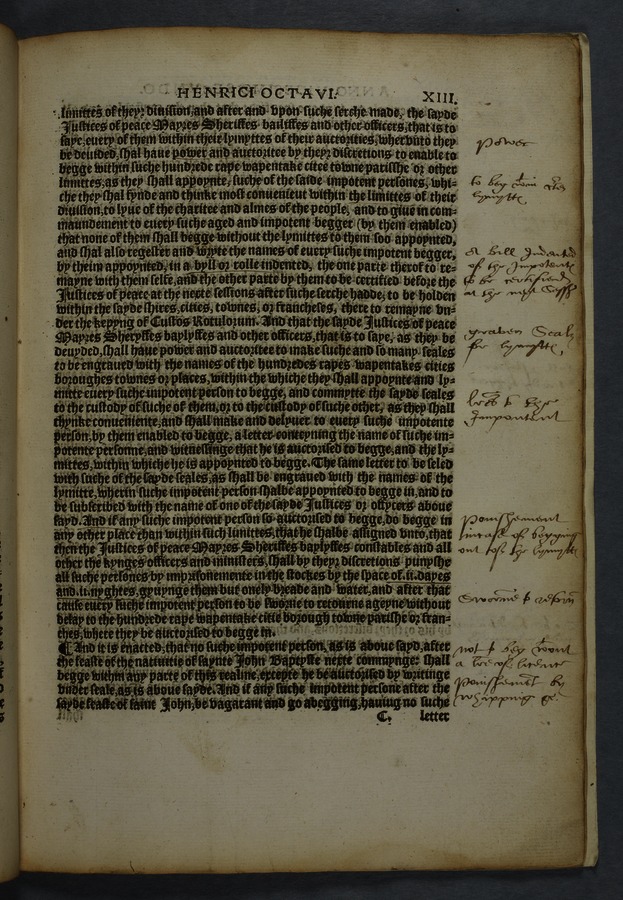 HENRICI OCTAVI. XIII.
limittes of theyr diuision, and after and vpon suche serche made, the sayde
Justices of peace Mayres Sheriffes bailiffes and other officers, that is to
saye, euery of them within their lymyttes of their auctorities, wherunto they
be deuided, shal haue power and auctoritee by theyr discretions to enable to
begge within suche hundrede rape wapentake citee towne parisshe or other
limittes, as they shall appoynte, suche of the saide impotent persones, whi-
che they shal fynde and thinke most conuenient within the limittes of their
diuision, to lyue of the charitee and almes of the people, and to giue in com-
maundement to euery suche aged and impotent begger (by them enabled)
that none of them shall begge without the lymittes to them soo appoynted,
and shal also register and wryte the names of euery suche impotent begger,
by theim appoynted, in a byll or rolle indented, the one parte therof to re-
mayne with them selfe, and the other parte by them to be certified before the
Justices of peace at the nexte sessions after suche serche hadde, to be holden
within the sayde shires, cities, townes, or francheses, there to remayne vn-
der the kepyng of Custos Rotulorum. And that the sayde Justices of peace
Mayres Sheriffes baylyffes and other officers, that is to saye, as they be
deuyded, shall haue power and auctoritee to make suche and so many seales
to be engraued with the names of the hundredes rapes wapentakes cities
boroughes townes or places, within the whiche they shall appoynte and ly-
mitte euery suche impotent person to begge, and commytte the sayde seales
to the custody of suche of them, or to the custody of suche other, as they shall
thynke conueniente, and shall make and delyuer to euery suche impotente
person, by them enabled to begge, a letter conteynyng the name of suche im-
potente persone, and witnessinge that he is auctorised to begge, and the ly-
mittes, within whiche he is appoynted to begge. The same letter to be seled
with suche of the sayde seales, as shall be engraued with the names of the
lymitte, wherin suche impotent person shalbe appoynted to begge in, and to
be subscribed with the name of one of the sayde Justices or officers aboue
sayd. And if any suche impotent person so auctorised to begge, do begge in
any other place than within such limittes, that he shalbe assigned vnto, that
then the Justices of peace Mayres Sheriffes baylyffes constables and all
other the kynges officers and ministers, shall by theyr discretions punyshe
all suche persones by imprisonemente in the stockes by the space of .ii. dayes
and .ii. nyghtes, gyuynge them but onely breade and water, and after that
cause euery suche impotent person to be sworne to retourne ageyne without
delay to the hundrede rape wapentake citie borough towne parishe or fran-
ches, where they be auctorised to begge in.
¶ And it is enacted, that no suche impotent person, as is aboue sayd, after
the feaste of the natiuitie of saynte John Baptyste nexte commynge: shall
begge within any parte of this realme, excepte he be auctorised by writinge
vnder seale, as is aboue sayde. And if any suche impotent persone after the
sayde feaste of saint John, be vagarant and go abegging, hauing no suche
C. letter
power
to beg
lymytte
A bill Indented
of the Impotente
to be certified
at the next Sess
graven Seals
for lymytte
Impotent
Punishement
of begging
out of the lymytte
not to beg wout
a lre of licence
Punishemt by
whipping